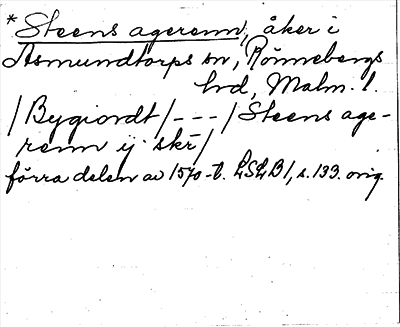 *Steens agerenn, åker i
Asmundtorps sn, Rönnebergs
hd, Malm. l.
/Bygiordt/---/Steens age-
renn ij skr/
förra delen av 1570-t. LSLB1, s. 133. orig.